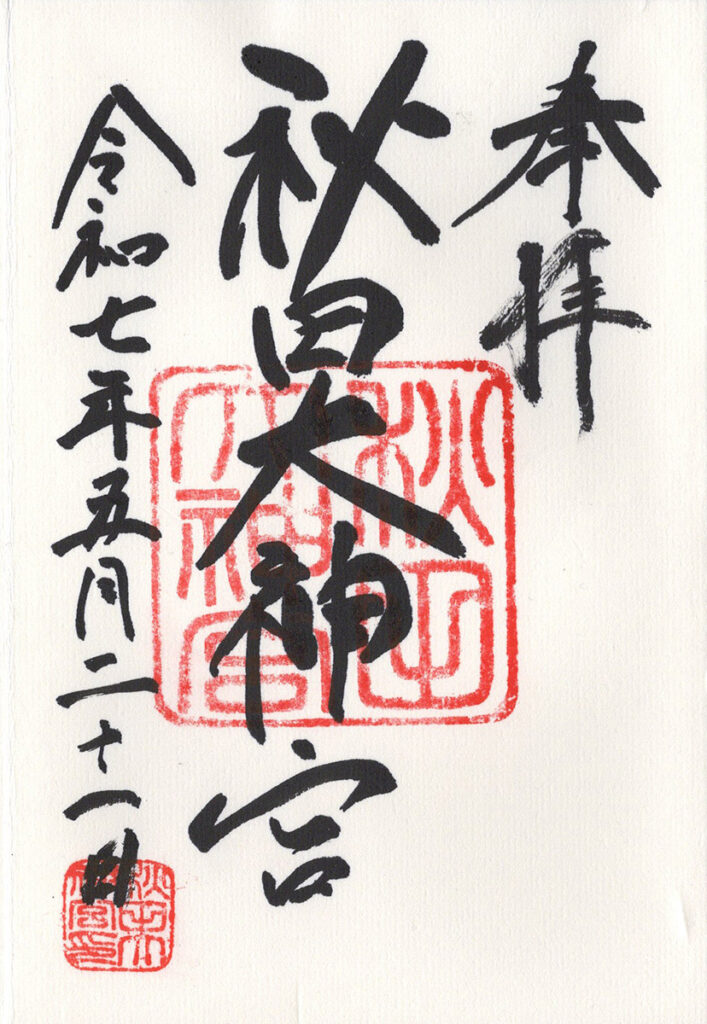 奉拝
秋田大神宮
令和七年五月二十一日
秋田大神宮